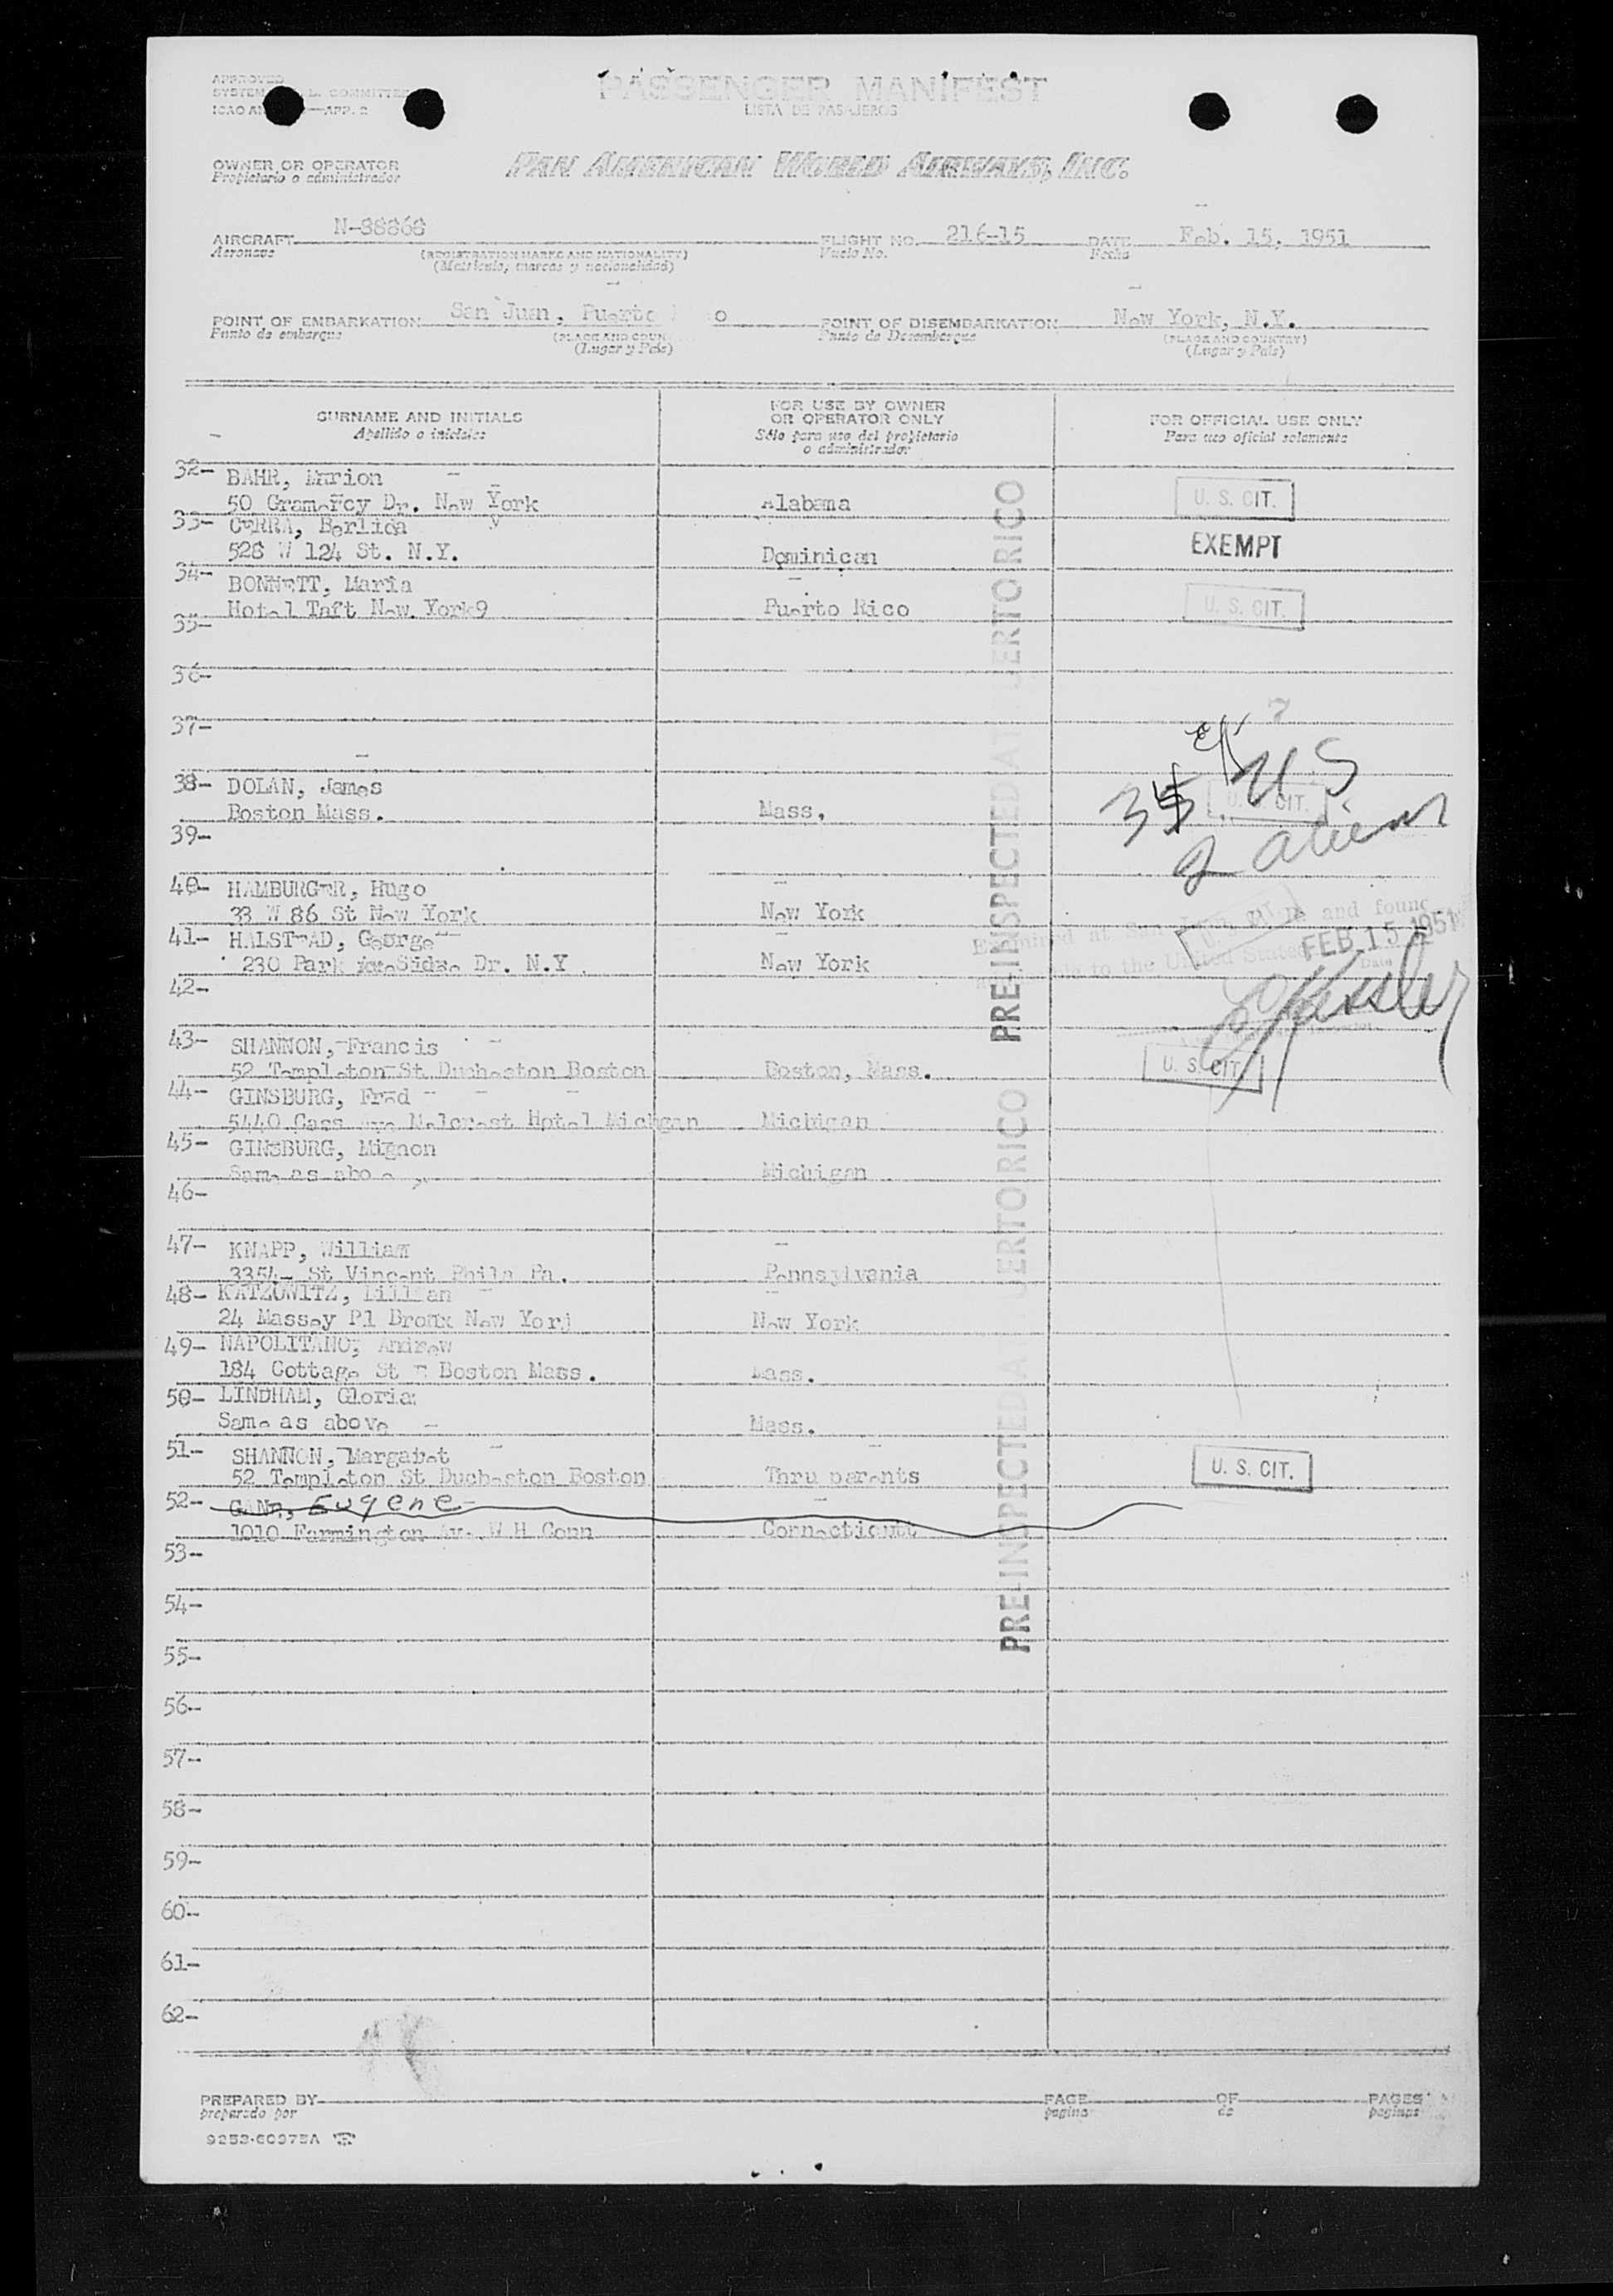 APPROVED
SYSTEM L. COMMITTEE
ICAO AN —APP. 2
PASSENGER MANIFEST
LISTA DE PASAJEROS
OWNER OR OPERATOR
Propietario o administrador
PAN AMERICAN WORLD AIRWAYS, INC.
AIRCRAFT N-88868 FLIGHT NO. 216-15 DATE Feb. 15, 1951
Aeronave (REGISTRATION MARKS AND NATIONALITY) Vuelo No. Fecha
(Matricula, marcas y nacionalidad)
POINT OF EMBARKATION San Juan, Puerto o POINT OF DISEMBARKATION New York, N.Y.
Punto de embarque (PLACE AND COUN Punto de Desembarque (PLACE AND COUNTRY)
(Lugar y País) (Lugar y País)
SURNAME AND INITIALS
Apellido o iniciales
FOR USE BY OWNER
OR OPERATOR ONLY
Sólo para uso del propietario
o administrador
FOR OFFICIAL USE ONLY
Para uso oficial solamente
32- BAHR, Marion
50 Gramercy Dr. New York Alabama U. S. CIT.
33- CERRA, Berlida
528 W 124 St. N.Y. Dominican EXEMPT
34- BONNETT, Maria
Hotel Taft New York9 Puerto Rico U. S. CIT.
35-
36-
37-
38- DOLAN, James
Boston Mass. Mass. U. S. CIT.
35 US
2 aliens
39-
40- HAMBURGER, Hugo
33 W 86 St New York New York
41- HALSTEAD, George
230 Park Dr. N.Y. New York
Examined at San Juan, and found
to the United States
FEB 15 1951
Date
42-
43- SHANNON, Francis
52 Templeton St Ducheston Boston Boston, Mass. U. S. CIT.
44- GINSBURG, Fred
5440 Cass Ave Malcrest Hotel Michgan Michigan
45- GINSBURG, Mignon
Same as above Michigan
46-
47- KNAPP, William
3354- St Vincent Phila Pa. Pennsylvania
48- KATZOWITZ, Lillian
24 Massey Pl Bronx New Yorj New York
49- NAPOLITANO, Andrew
184 Cottage St - Boston Mass. Mass.
50- LINDHAM, Gloria
Same as above Mass.
51- SHANNON, Margaret
52 Templeton St Ducheston Boston Thru parents U. S. CIT.
52- GANT, Eugene
1010 Farmington Ave W H Conn Connecticutt
53-
54-
55-
56-
57-
58-
59-
60-
61-
62-
PRE-INSPECTED AT PUERTO RICO
PRE-INSPECTED AT PUERTO RICO
PREPARED BY PAGE OF PAGES
preparado por pagina de paginas
9253-60375A